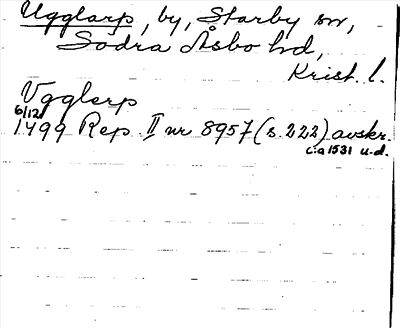 Ugglarp, by, Starby sn,
Södra Åsbo hd,
Krist. l.
Vgglerp
6/12
1499 Rep. II nr 8957 (s. 222) avskr.
ca 1531 u.d.